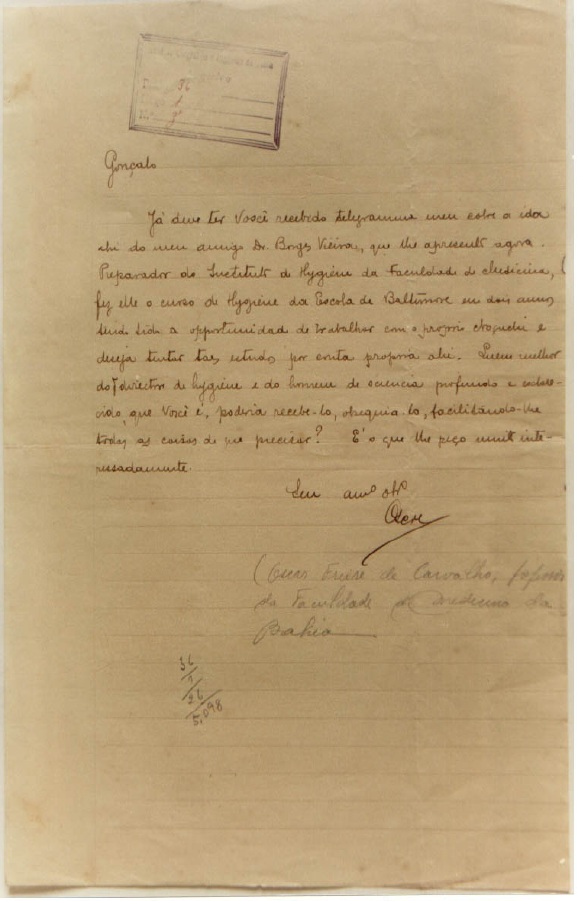 Gonçalo
Já deve ter Você recebido telegramma meu sobre a ida
ahi do meu amigo Dr. Borges Vieira, que lhe apresento agora.
Preparador do Instituto de Hygiene da Faculdade de Medicina,
fez elle o curso de Hygiene da Escola de Baltimore em dois annos
tendo tido a opportunidade de trabalhar com o proprio Noguchi e
deseja tentar taes estudos por conta propria ahi. Quem melhor
do director de hygiene e do homem de sciencia profundo e
que Você é, poderia recebe-lo, obsequia-lo, facilitando-lhe
todas as coisas de que precisar? É o que lhe peço muito inte-
ressadamente.
Seu amº obrº
Oscar
(Oscar Freire de Carvalho, professor
da Faculdade de Medicina da
Bahia
36
1
26
5,098